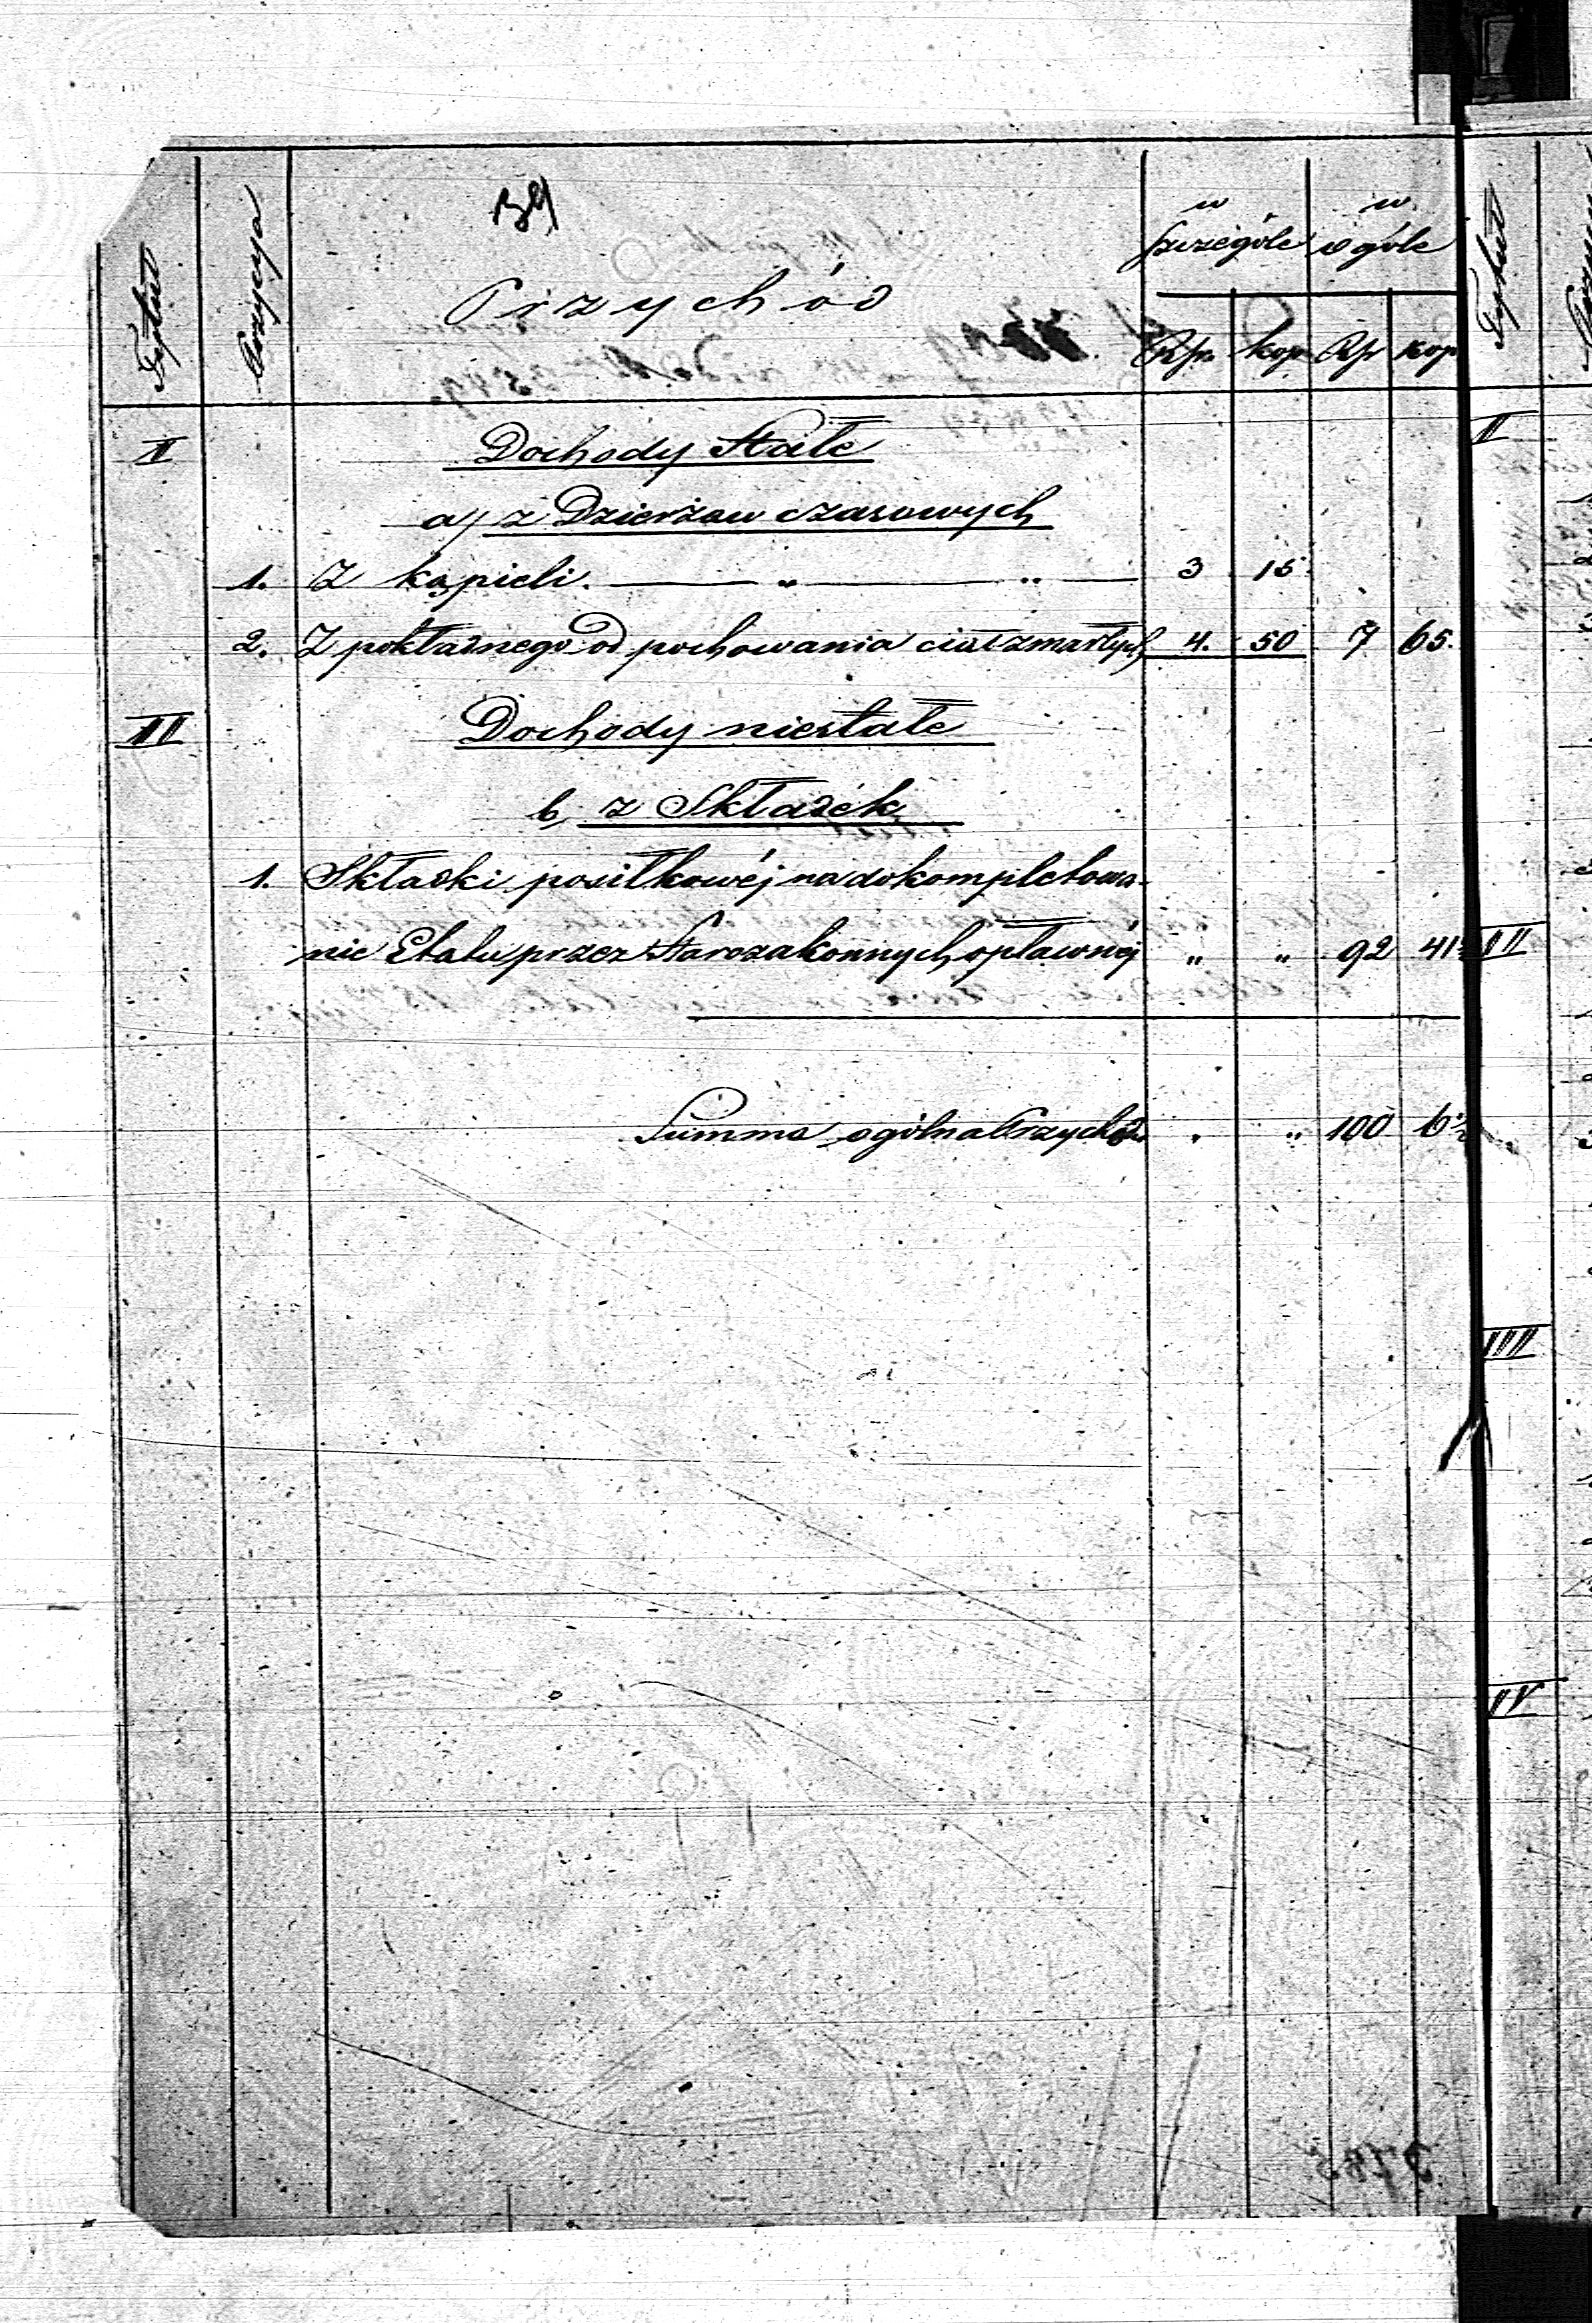 39
Tytuł Pozycya Przychód w szczególe w ogóle
Rsr. kop Rsr kop
II Dochody Stałe
a/ z Dzierżaw czasowych
1. Z kąpieli. — „ — „ — 3 15
2. Z pokładnego od pochowania ciał zmarłych 4. 50 7 65.
III Dochody niestałe
b, z Składek
1. Składki posiłkowéj na dokompletowa-
nie Etatu przez Starozakonnych opłacanéj „ „ 92 41½
Summa ogólna Przychodu „ „ 100 6½
Tytuł
II
III
IIII
IV